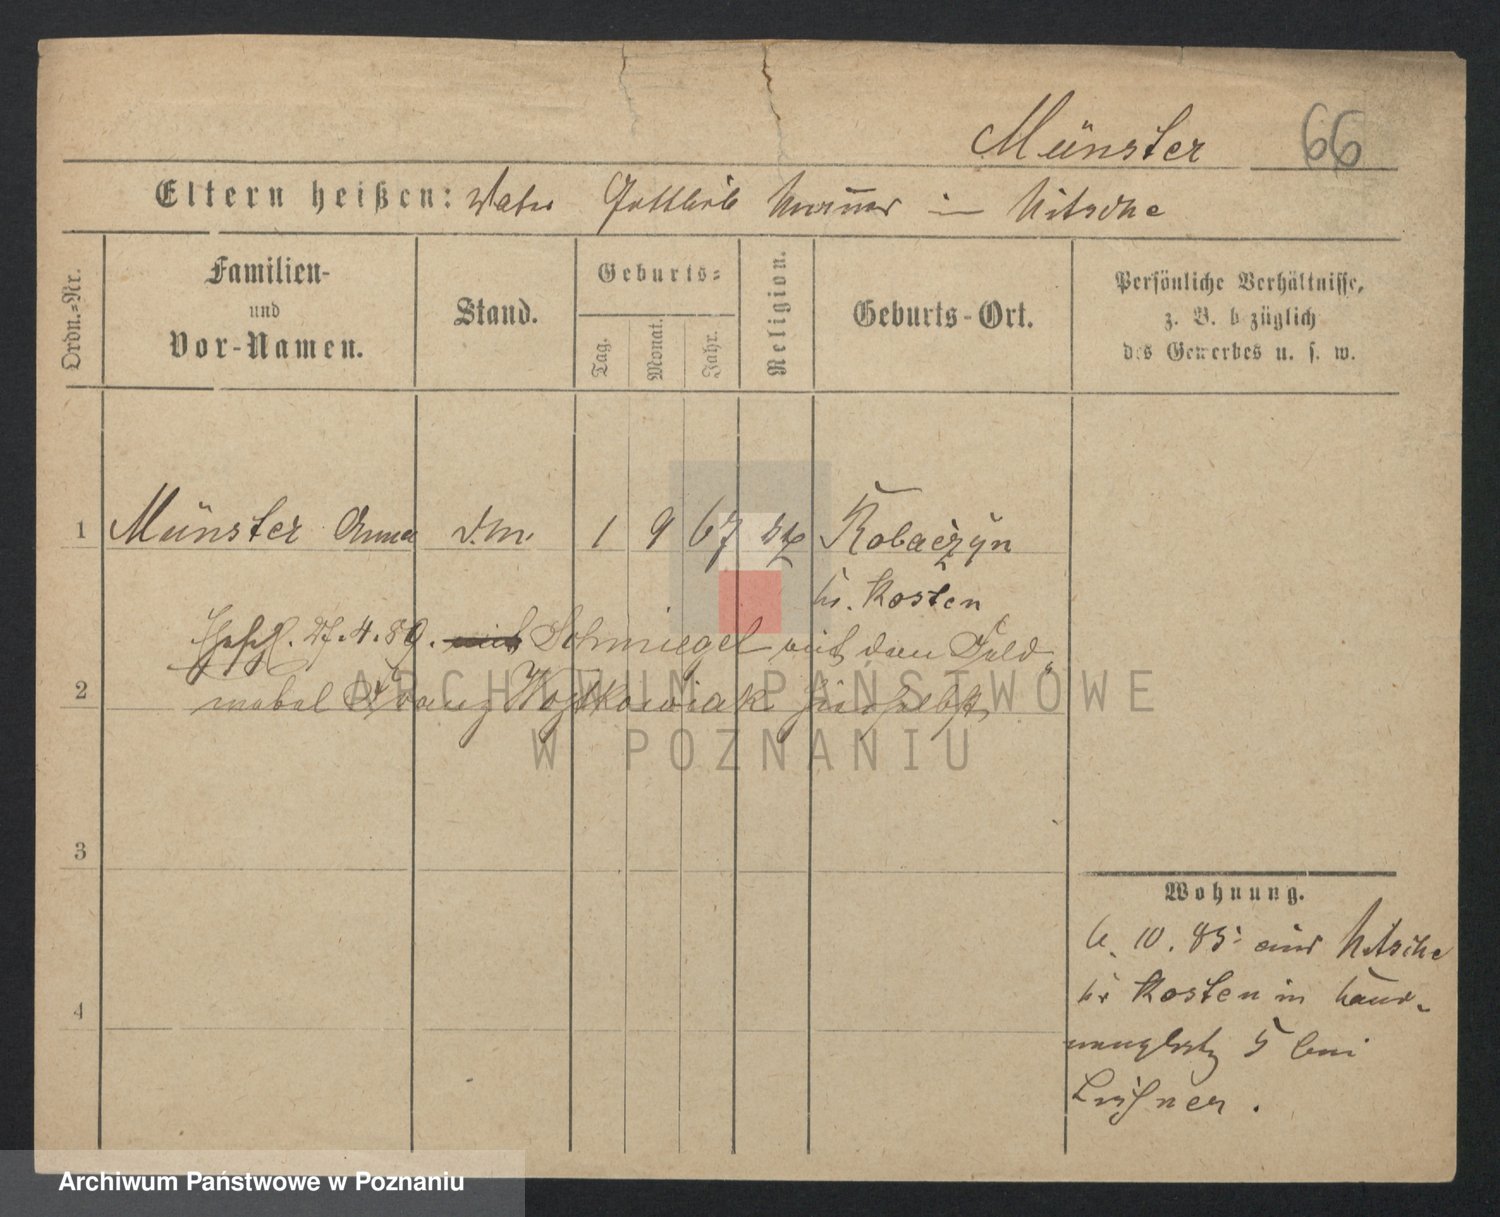 Münster 66
Eltern heißen: Vater Gottlieb in Nitsche
Ordn.-Nr.
Familien-
und
Vor-Namen.
Stand.
Geburts-
Tag.
Monat.
Jahr.
Religion.
Geburts-Ort.
Persönliche Verhältnisse,
z. B. bezüglich
des Gewerbes u. s. w.
1 Münster Anna d.m. 1 9 67 Robaczyn
kr. Kosten
27.4.89. mit Schmiegel mit dem Feld
2 Franz Woytkowiak hierselbst
3
4
Wohnung.
6. 10. 85 aus Nitsche
kr Kosten in
5 bei
ARCHIWUM PAŃSTWOWE
W POZNANIU
Archiwum Państwowe w Poznaniu